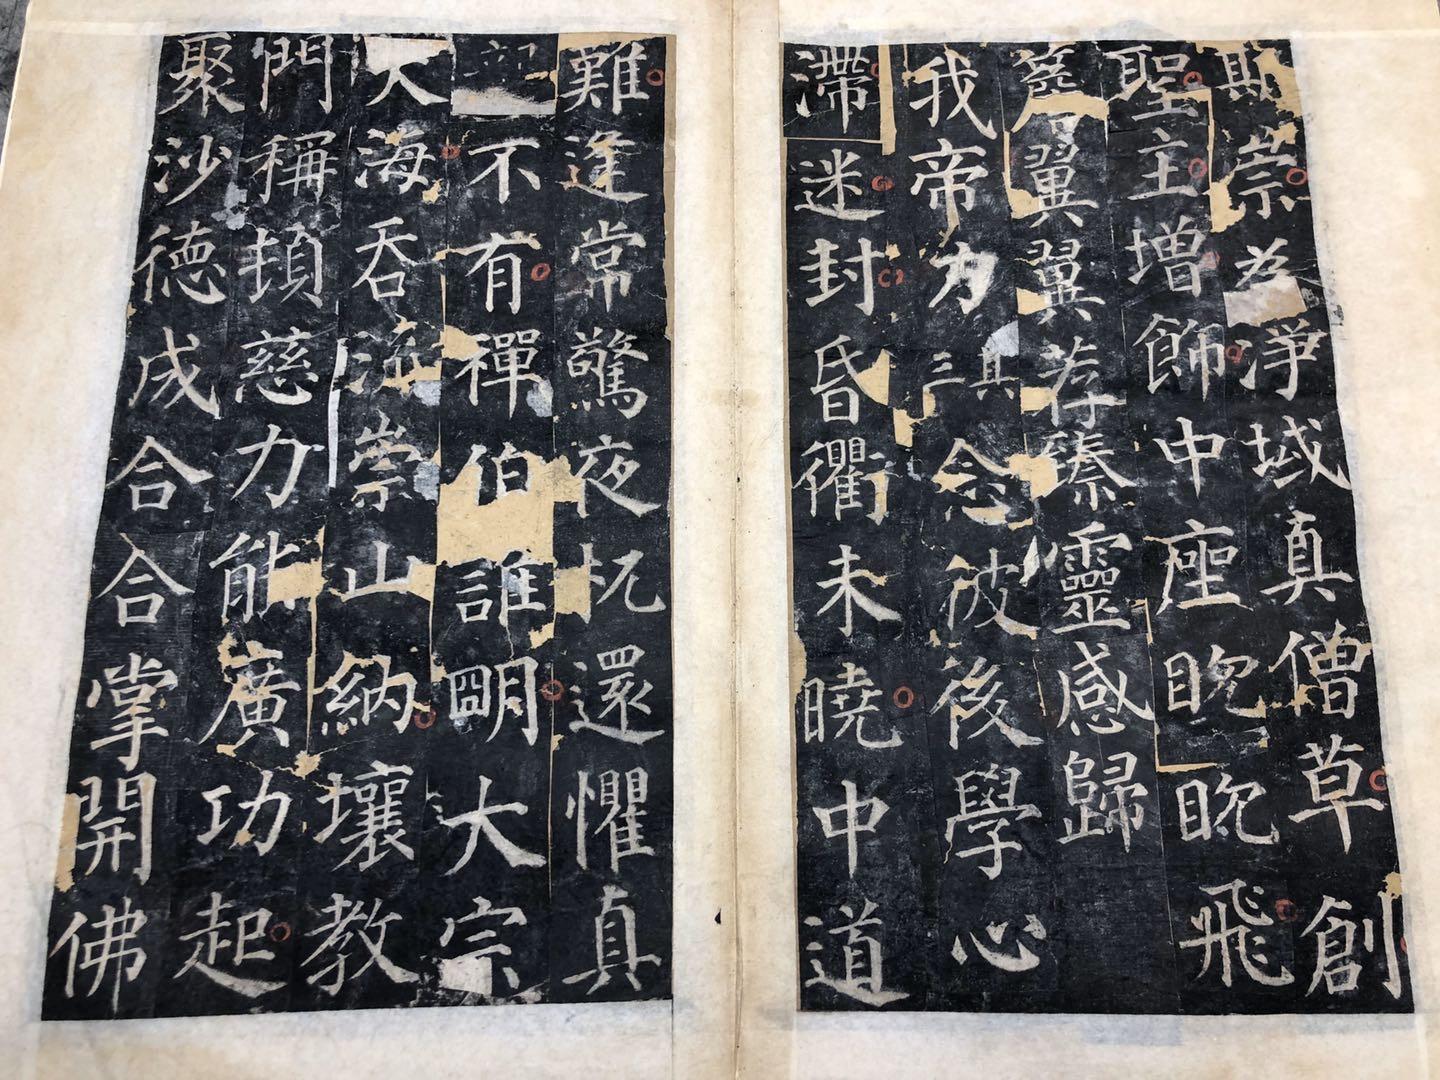 斯崇為淨域真僧草創
聖主增飾中座眈眈飛
簷翼翼荐臻靈感歸
我帝力其三念彼後學心
滯迷封昏衢未曉中道
難逢常驚夜枕還懼真
不有禪伯誰明大宗
大海吞流崇山納壤教
門稱頓慈力能廣功起
聚沙德成合合掌開佛